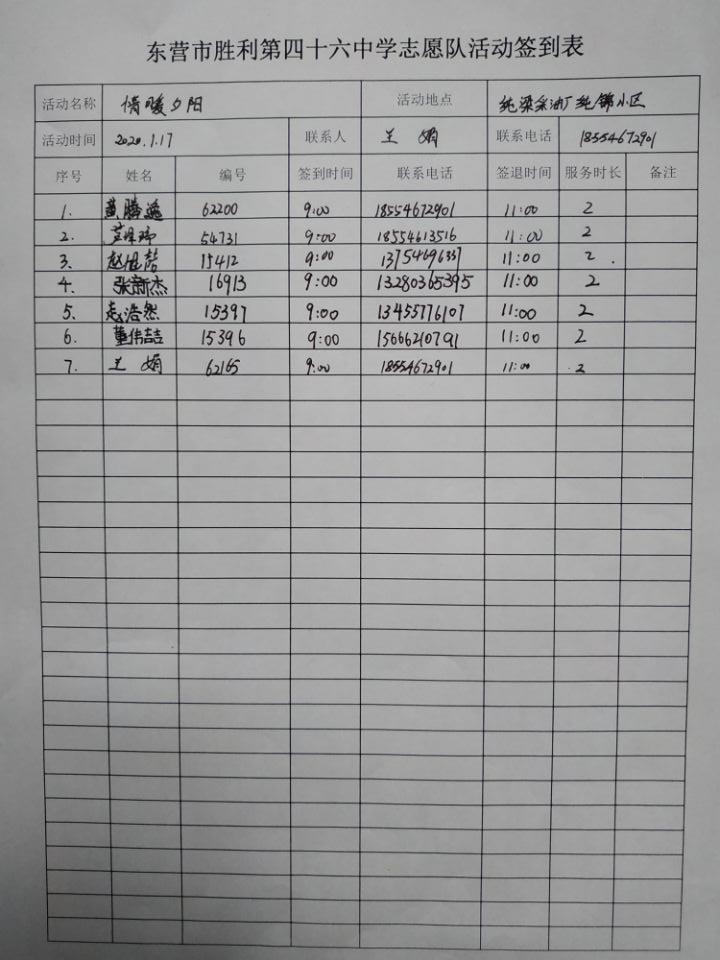 东营市胜利第四十六中学志愿队活动签到表
活动名称 情暖夕阳 活动地点 纯梁采油厂纯锦小区
活动时间 2020.1.17 联系人 王娟 联系电话 18554672901
序号 姓名 编号 签到时间 联系电话 签退时间 服务时长 备注
1. 黄腾逸 62200 9:00 18554672901 11:00 2
2. 54731 9:00 18554613516 11:00 2
3. 赵旭喆 15412 9:00 13754696337 11:00 2
4. 张新杰 16913 9:00 13280365395 11:00 2
5. 赵浩然 15397 9:00 13455776107 11:00 2
6. 董伟喆 15396 9:00 15666210791 11:00 2
7. 王娟 62165 9:00 18554672901 11:00 2